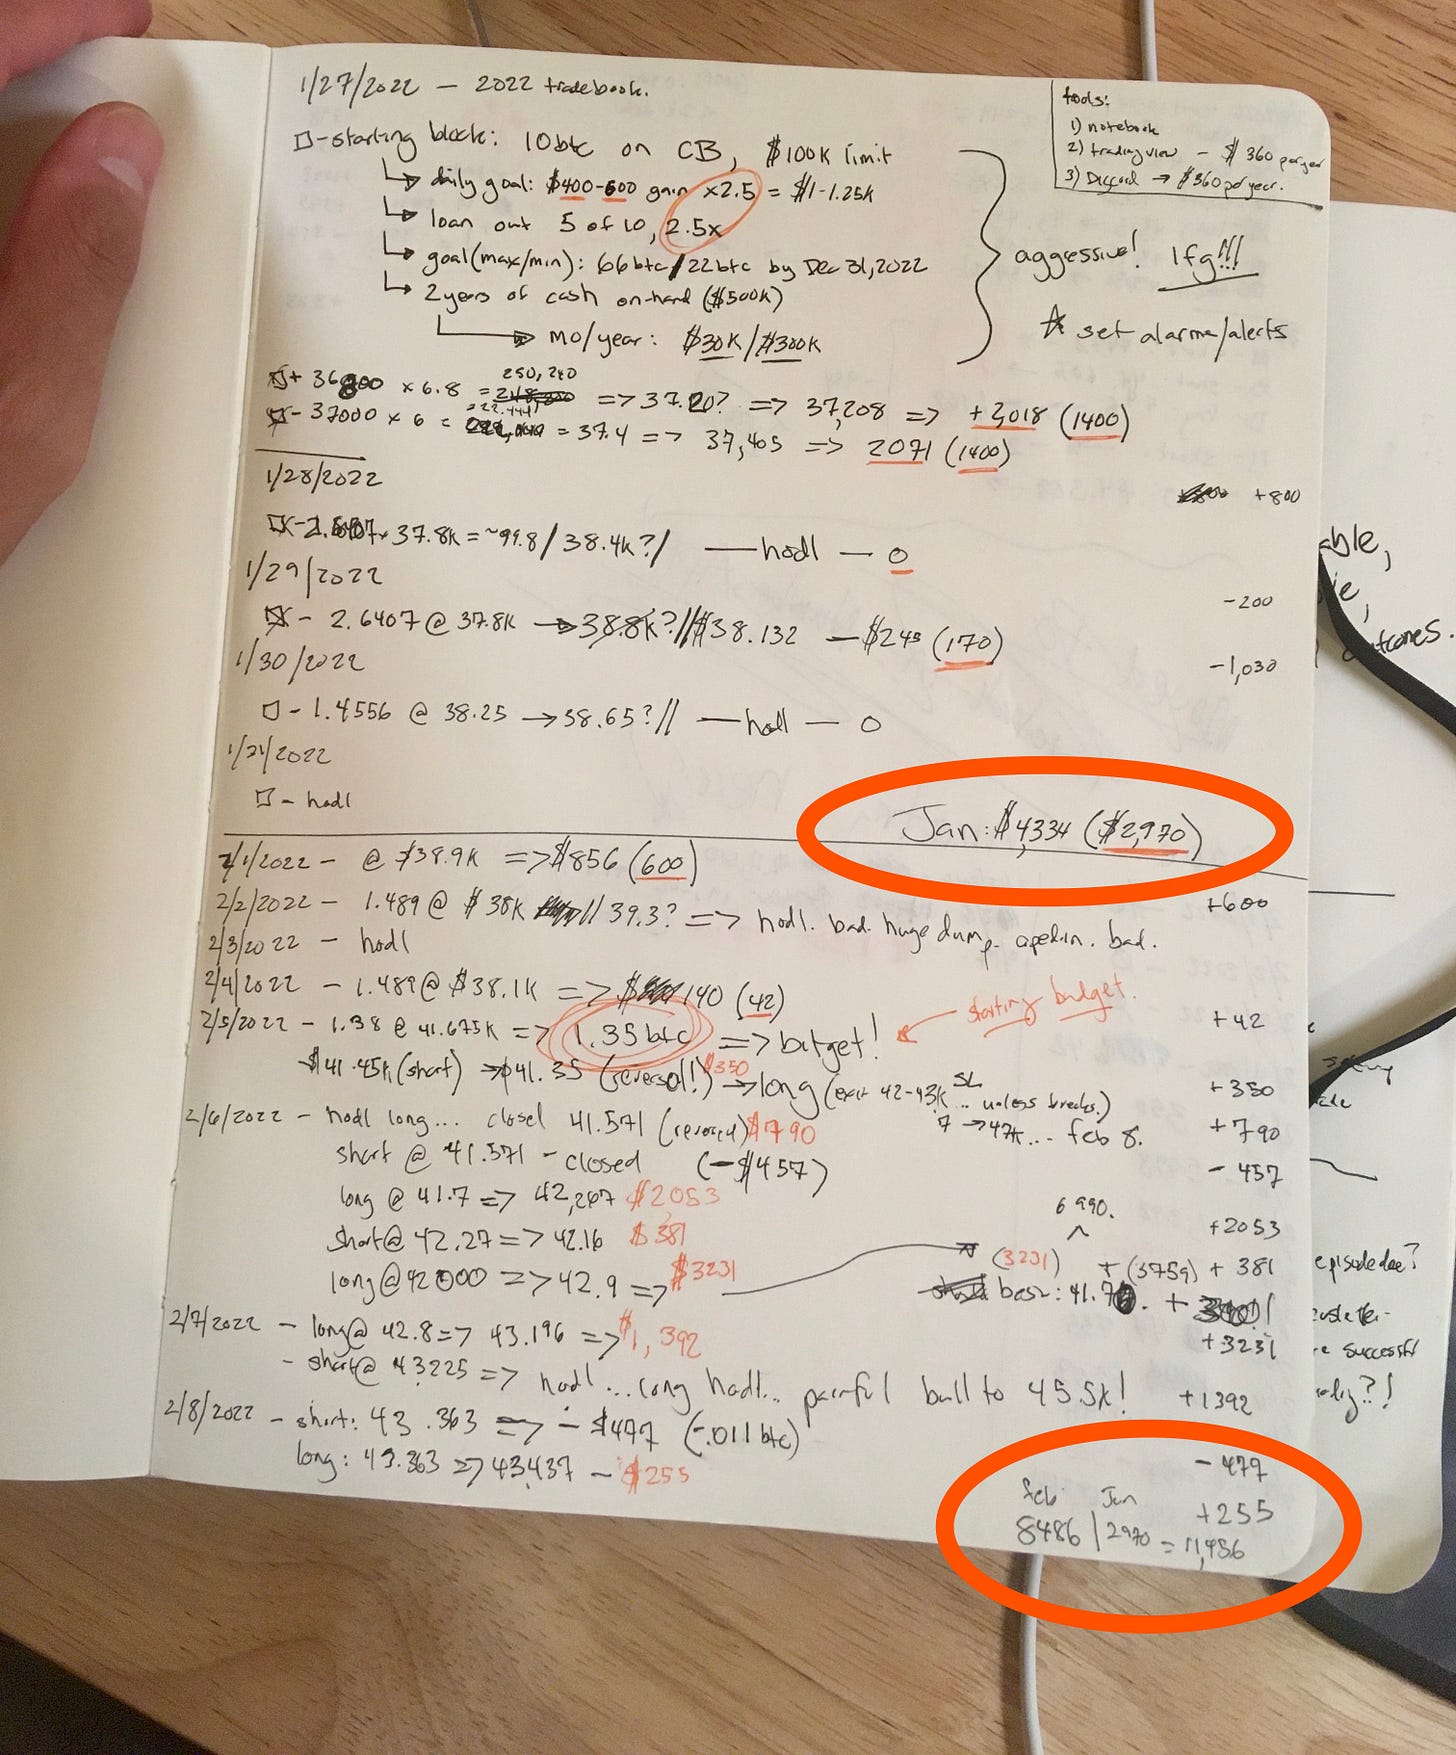 1/27/2022 — 2022 tradebook.
tools:
1) notebook
2) tradingview — $360 per year
3) Discord → $360 per year.
□-starting block: 10btc on CB, $100k limit
↳ daily goal: $400-600 gain x2.5 = $1-1.25k
↳ loan out 5 of 10, 2.5x
↳ goal(max/min): 66btc/22btc by Dec 31, 2022
↳ 2 years of cash on-hand ($500k)
→ mo/year: $30k/$300k
aggressive! lfg!!!
☆ set alarms/alerts
250,240
+ 36800 x 6.8 = => 37.20? => 37,208 => +2,018 (1400)
- 37000 x 6 = = 37.4 => 37,405 => 2071 (1400)
1/28/2022
+800
- 2.6407 x 37.8k = ~99.8/38.4k?/ — hodl — 0
1/29/2022
-200
- 2.6407 @ 37.8k → 38.8k?//$38.132 — $243 (170)
1/30/2022
-1,030
□ - 1.4556 @ 38.25 → 38.65?// — hodl — 0
1/31/2022
□ - hodl
Jan: $4,334 ($2,970)
2/1/2022 - @ $38.9k => $856 (600)
+600
2/2/2022 - 1.489 @ $38k // 39.3? => hodl. bad. huge dump. aped in. bad.
2/3/2022 - hodl
2/4/2022 - 1.489 @ $38.1k => $140 (42)
starting budget.
+42
2/5/2022 - 1.38 @ 41.675k => 1.35 btc => bitget!
$41.45k (short) → $41.35 (reversal!) $350 → long (exit 42-43k SL .. unless breaks.)
+350
? → 47k... feb 8.
2/6/2022 - hodl long... closed 41.571 (reversed) $790
+790
short @ 41.571 - closed (-$457)
-457
long @ 41.7 => 42,267 $2053
6990.
+2053
short @ 42.27 => 42.16 $381
(3231) + (3759) + 381
long @ 42000 => 42.9 => $3231
base: 41.76. +
+3231
2/7/2022 - long @ 42.8 => 43.196 => $1,392
- short @ 43225 => hodl... long hodl... painful bull to 45.5k!
+1392
2/8/2022 - short: 43.363 => - $479 (-.011 btc)
-479
long: 43.363 => 43,437 - $255
+255
feb Jan
8486 | 2970 = 11,456
able,
outcomes.
episode
successful